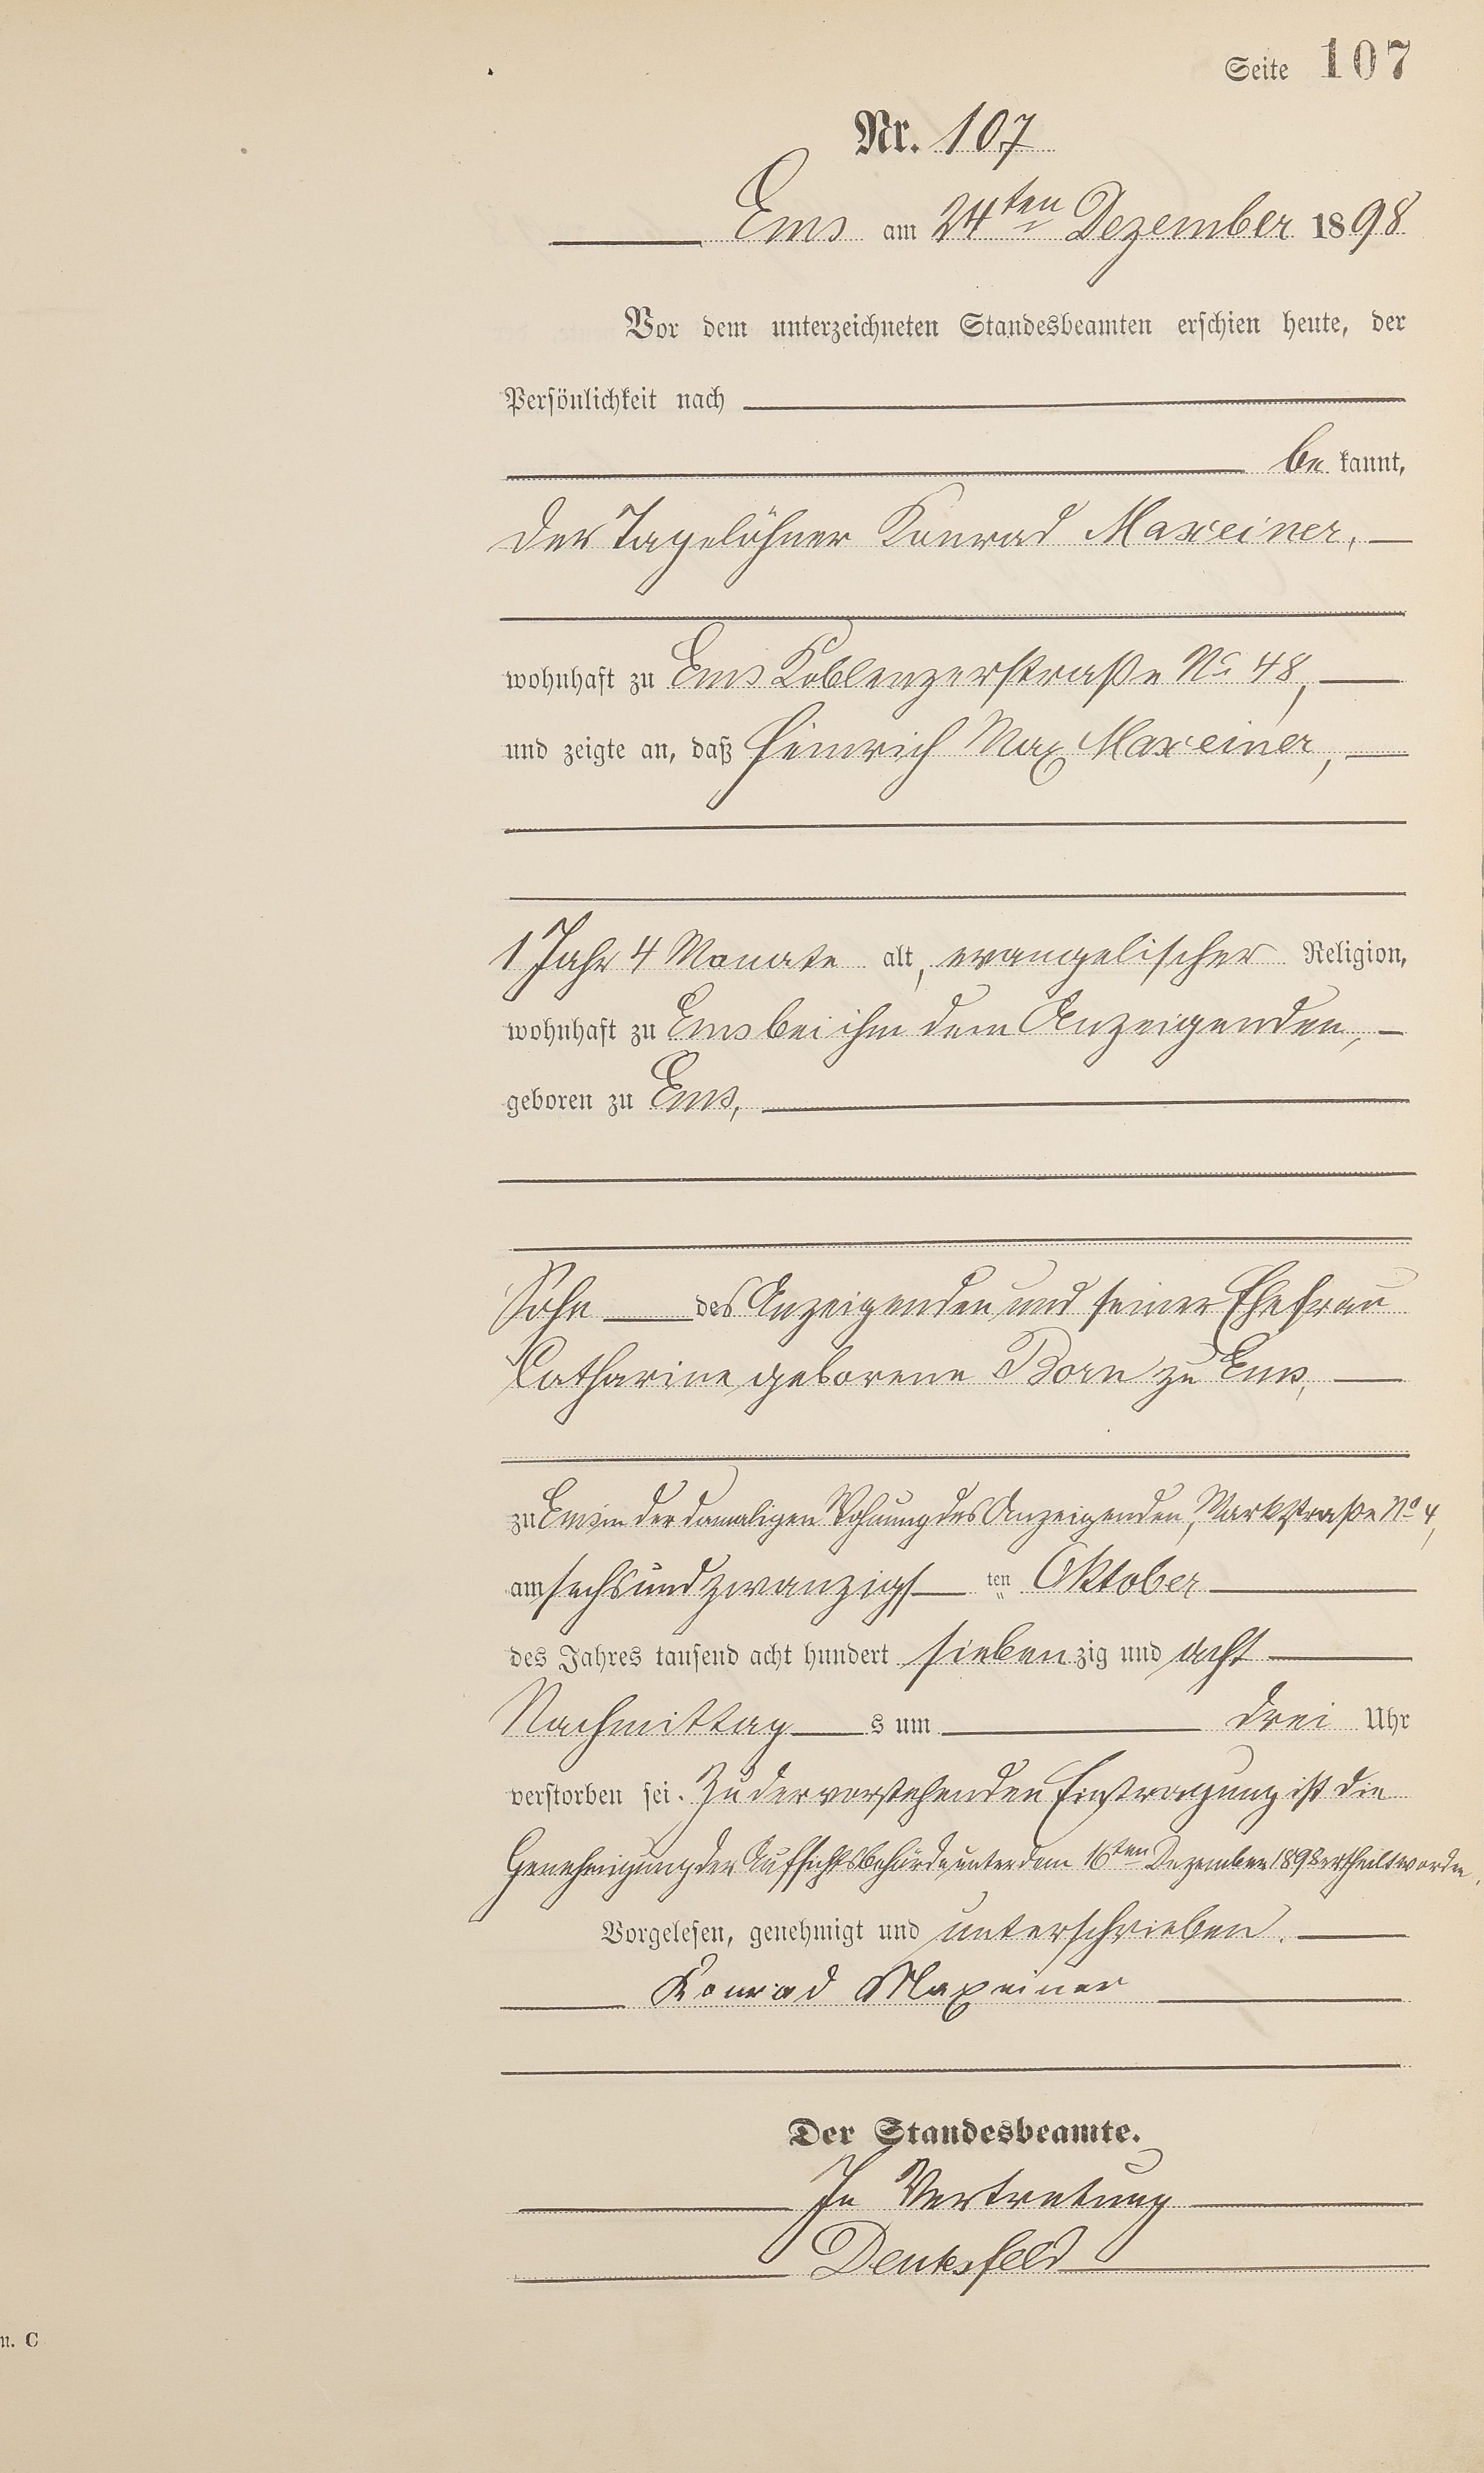 Seite 107
Nr. 107
Ems am 24ten Dezember 1898
Vor dem unterzeichneten Standesbeamten erschien heute, der
Persönlichkeit nach
be kannt,
der Tagelöhner Konrad Maxeiner,
wohnhaft zu Ems Koblenzerstraße No 48,
und zeigte an, daß Heinrich Max Maxeiner,
1 Jahr 4 Monate alt, evangelischer Religion,
wohnhaft zu Ems bei ihm dem Anzeigenden,
geboren zu Ems,
Sohn des Anzeigenden und seiner Ehefrau
Catharine geborene Born zu Ems,
zu Ems in der damaligen Wohnung des Anzeigenden, Marktstraße No 4,
am sechsundzwanzigsten Oktober
des Jahres tausend acht hundert siebenzig und acht
Nachmittags um drei Uhr
verstorben sei. Zu der vorstehenden Eintragung ist die
Genehmigung der Aufsichtsbehörde unter dem 16ten Dezember 1898 ertheilt worden.
Vorgelesen, genehmigt und unterschrieben.
Konrad Maxeiner
Der Standesbeamte.
In Vertretung
n. C